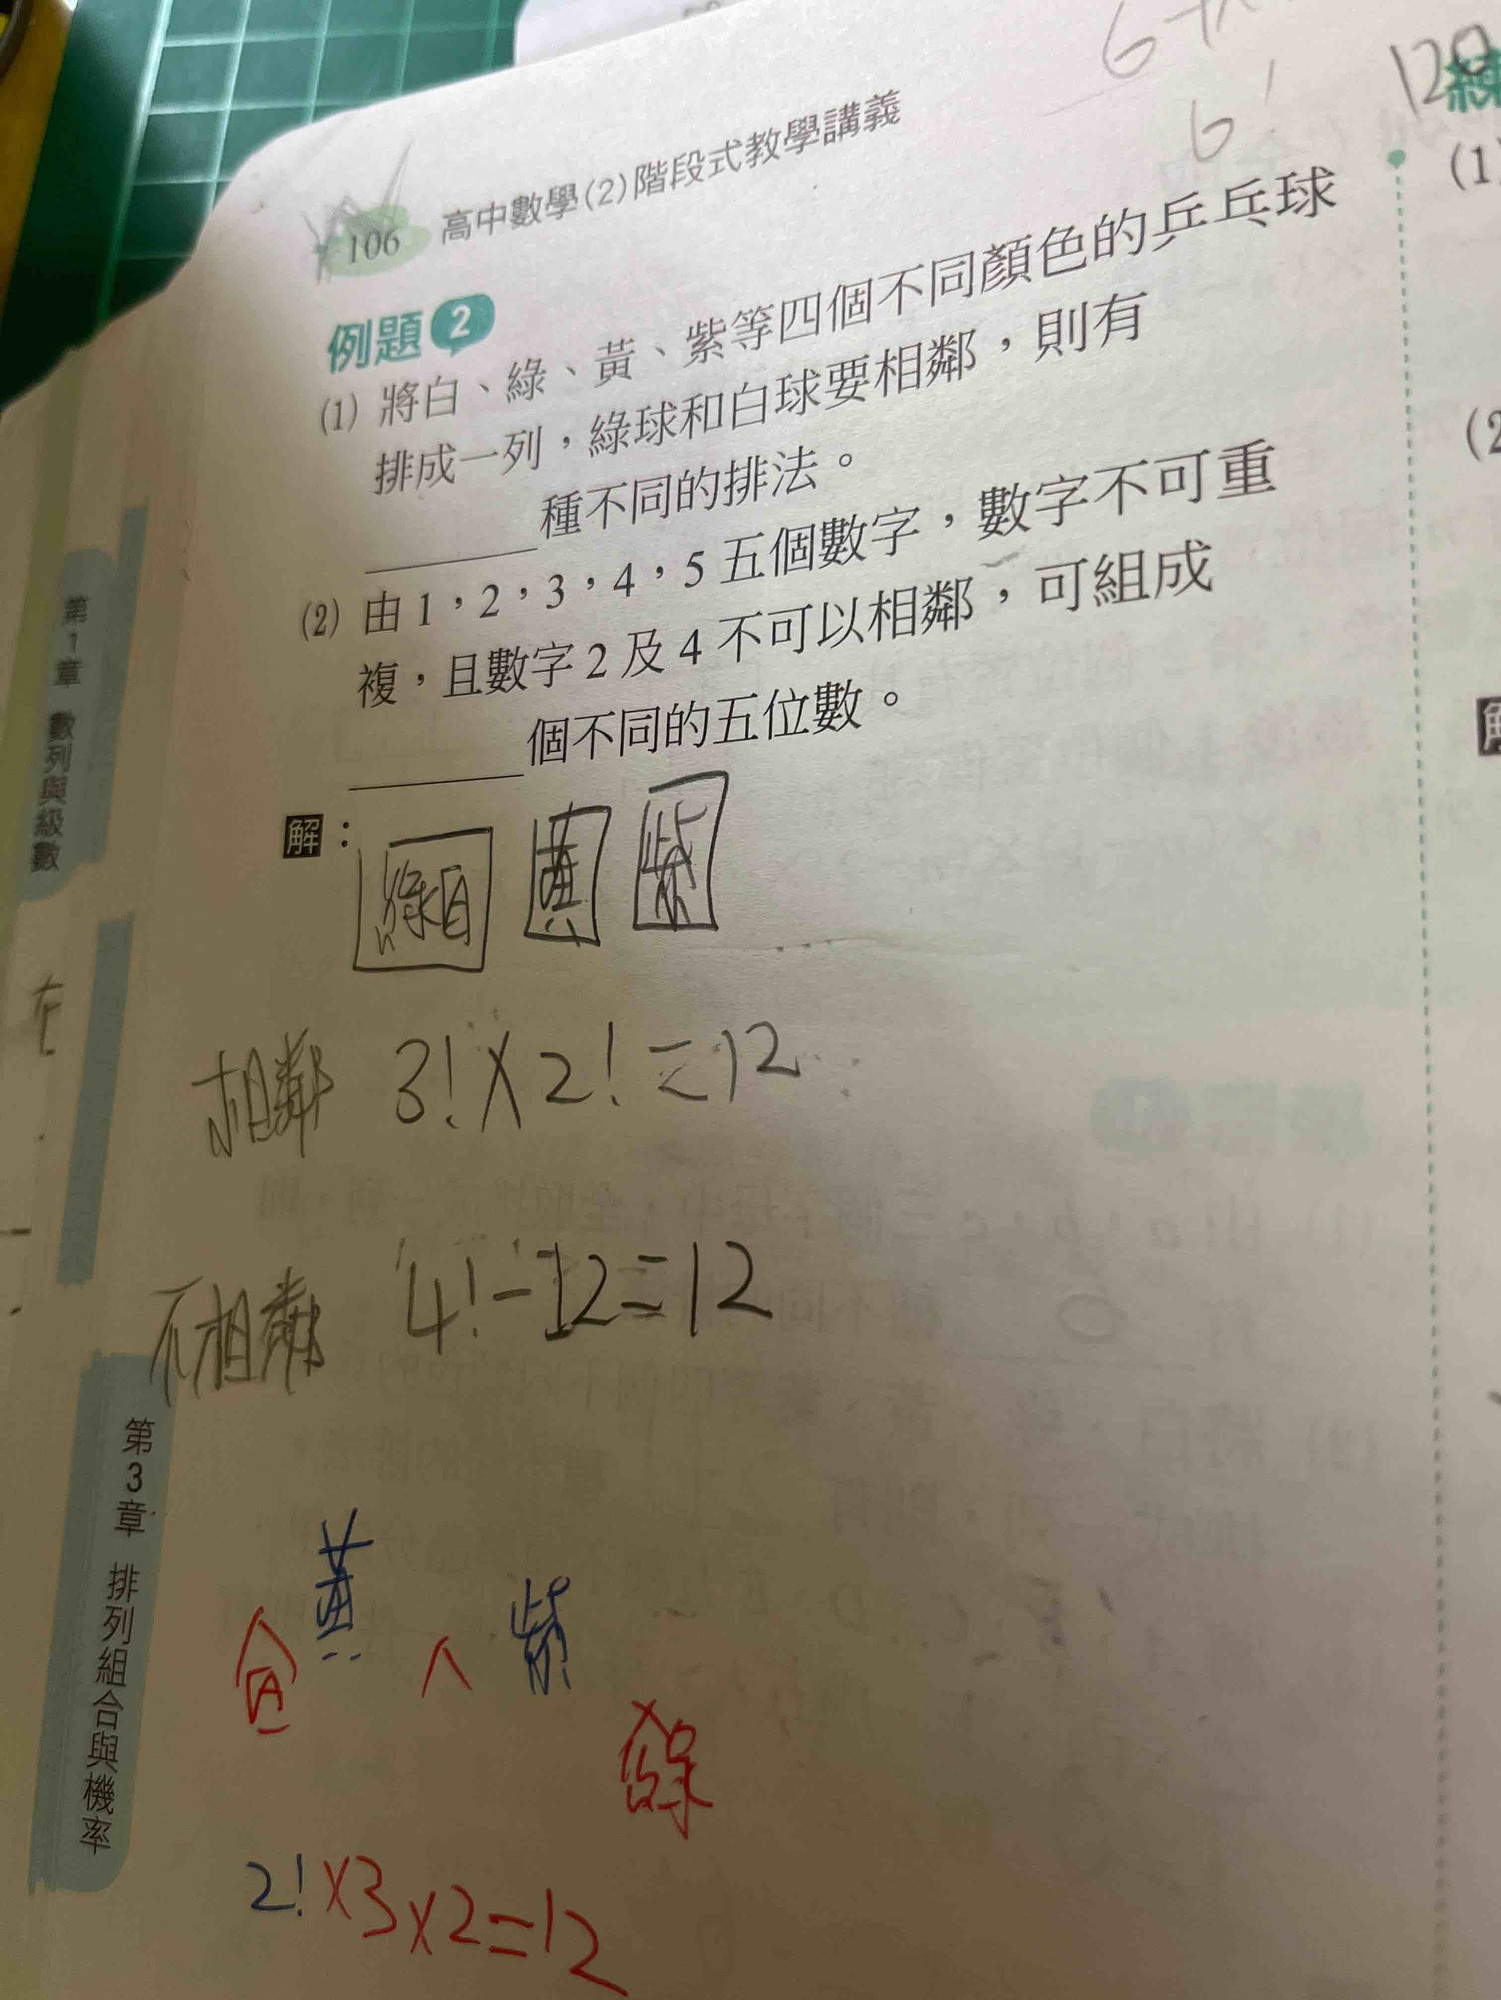 106 高中數學(2)階段式教學講義
6
6!
120
例題 2
(1) 將白、綠、黃、紫等四個不同顏色的乒乓球
排成一列，綠球和白球要相鄰，則有
種不同的排法。
(2) 由 1，2，3，4，5 五個數字，數字不可重
複，且數字 2 及 4 不可以相鄰，可組成
個不同的五位數。
解：
綠白 黃 紫
相鄰 3! × 2! = 12
不相鄰 4! - 12 = 12
黃 紫
白 綠
2! × 3 × 2 = 12
第1章 數列與級數
第3章 排列組合與機率
(1)
(2